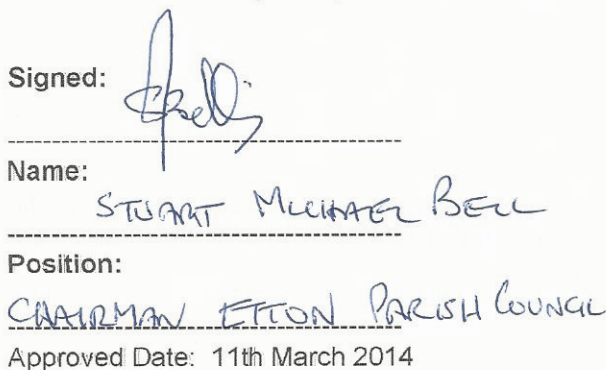 Signed:
Name:
STUART MICHAEL BELL
Position:
CHAIRMAN ETTON PARISH COUNCIL
Approved Date: 11th March 2014